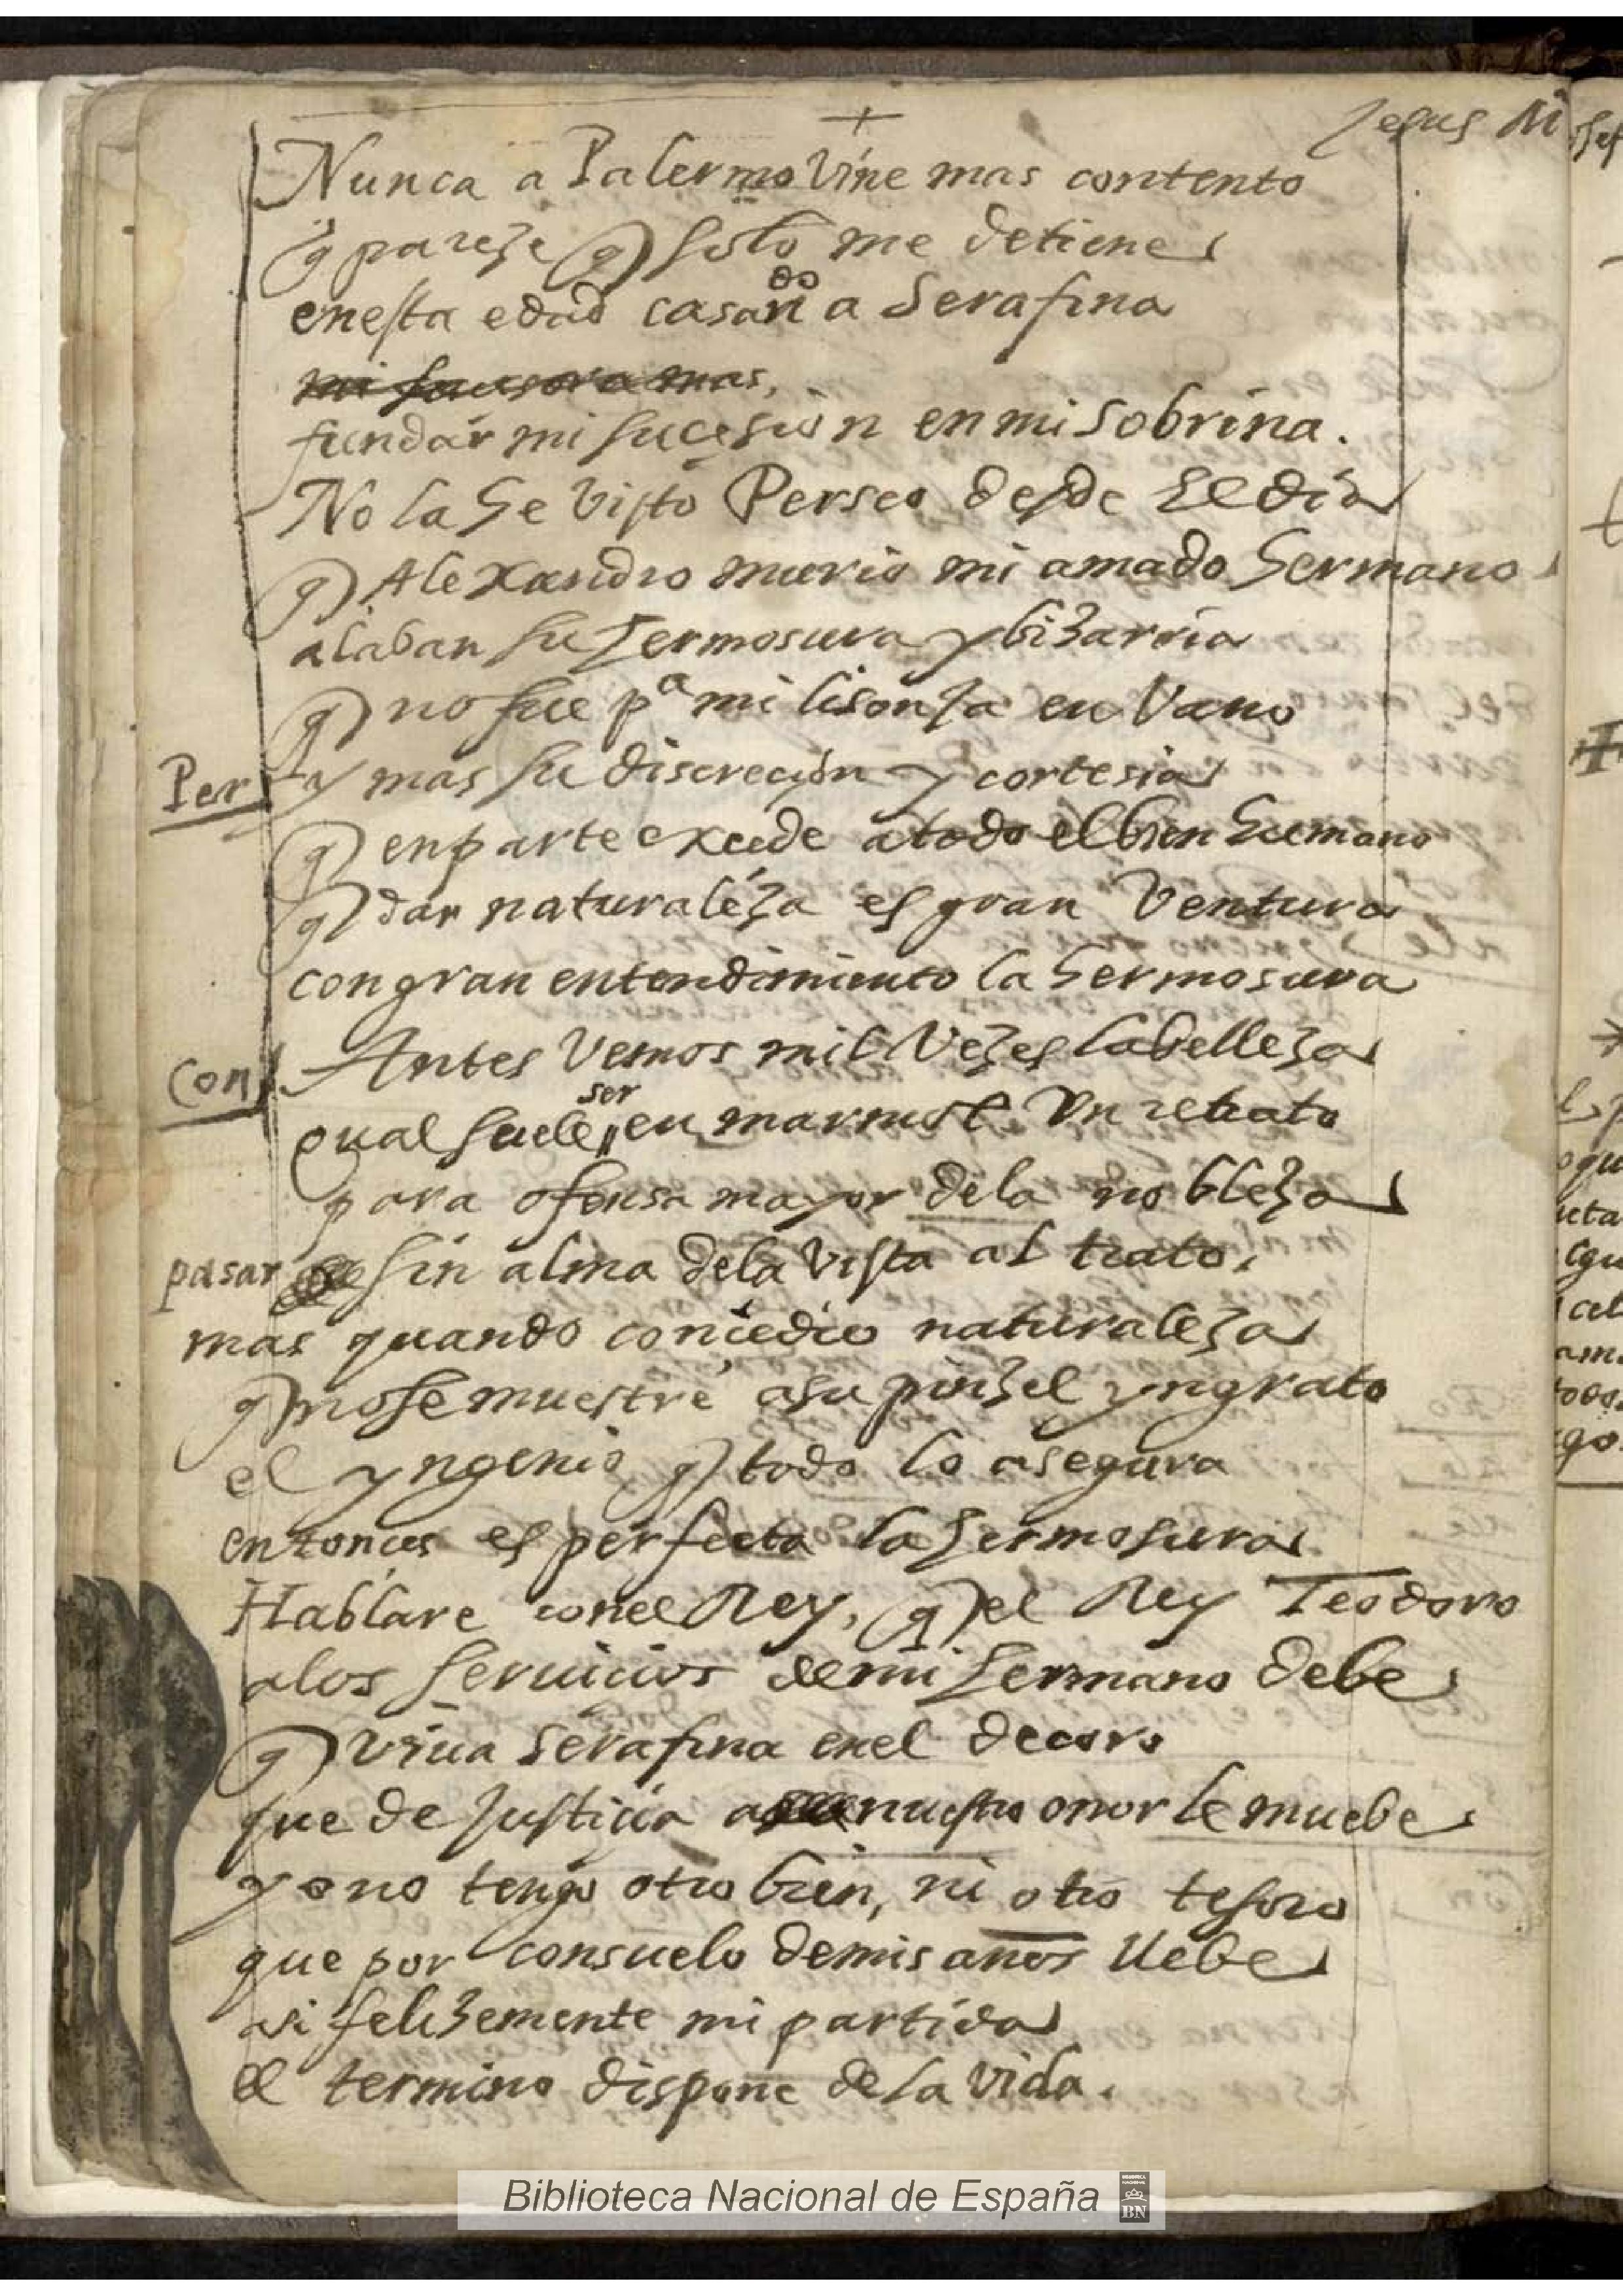 +
Jesus M
Nunca a Palermo Vine mas contento
q pareze q solo me detiene
enesta edad casando a Serafina
fundar mi sucesion en mi sobrina.
No la he visto Perseo desde El dia
q Alexandro murio mi amado hermano
alaban su hermosura y bizarria
q no fue pa mi lisonja en Vano
Per y mas su discrecion y cortesia
q en parte excede a todo el bien humano
q dar naturaleza es gran Ventura
con gran entendimiento la hermosura
Con Antes Vemos mil Vezes la belleza
qual suele ser en marmol Un retrato
para ofensa mayor dela nobleza
pasar sin alma dela vista al trato,
mas quando concedio naturaleza
q no se muestre asu pinzel yngrato
el yngenio q todo lo asegura
entonces es perfecta la hermosura
Hablare conel Rey, q el Rey Teodoro
alos seruicios demi hermano debe
q viua Serafina enel decoro
que de Justicia a nuestro onor le muebe
yo no tengo otro bien, ni otro tesoro
que por consuelo demis años llebe
asi felizemente mi partida
el termino dispone de la vida.
Biblioteca Nacional de España
BN